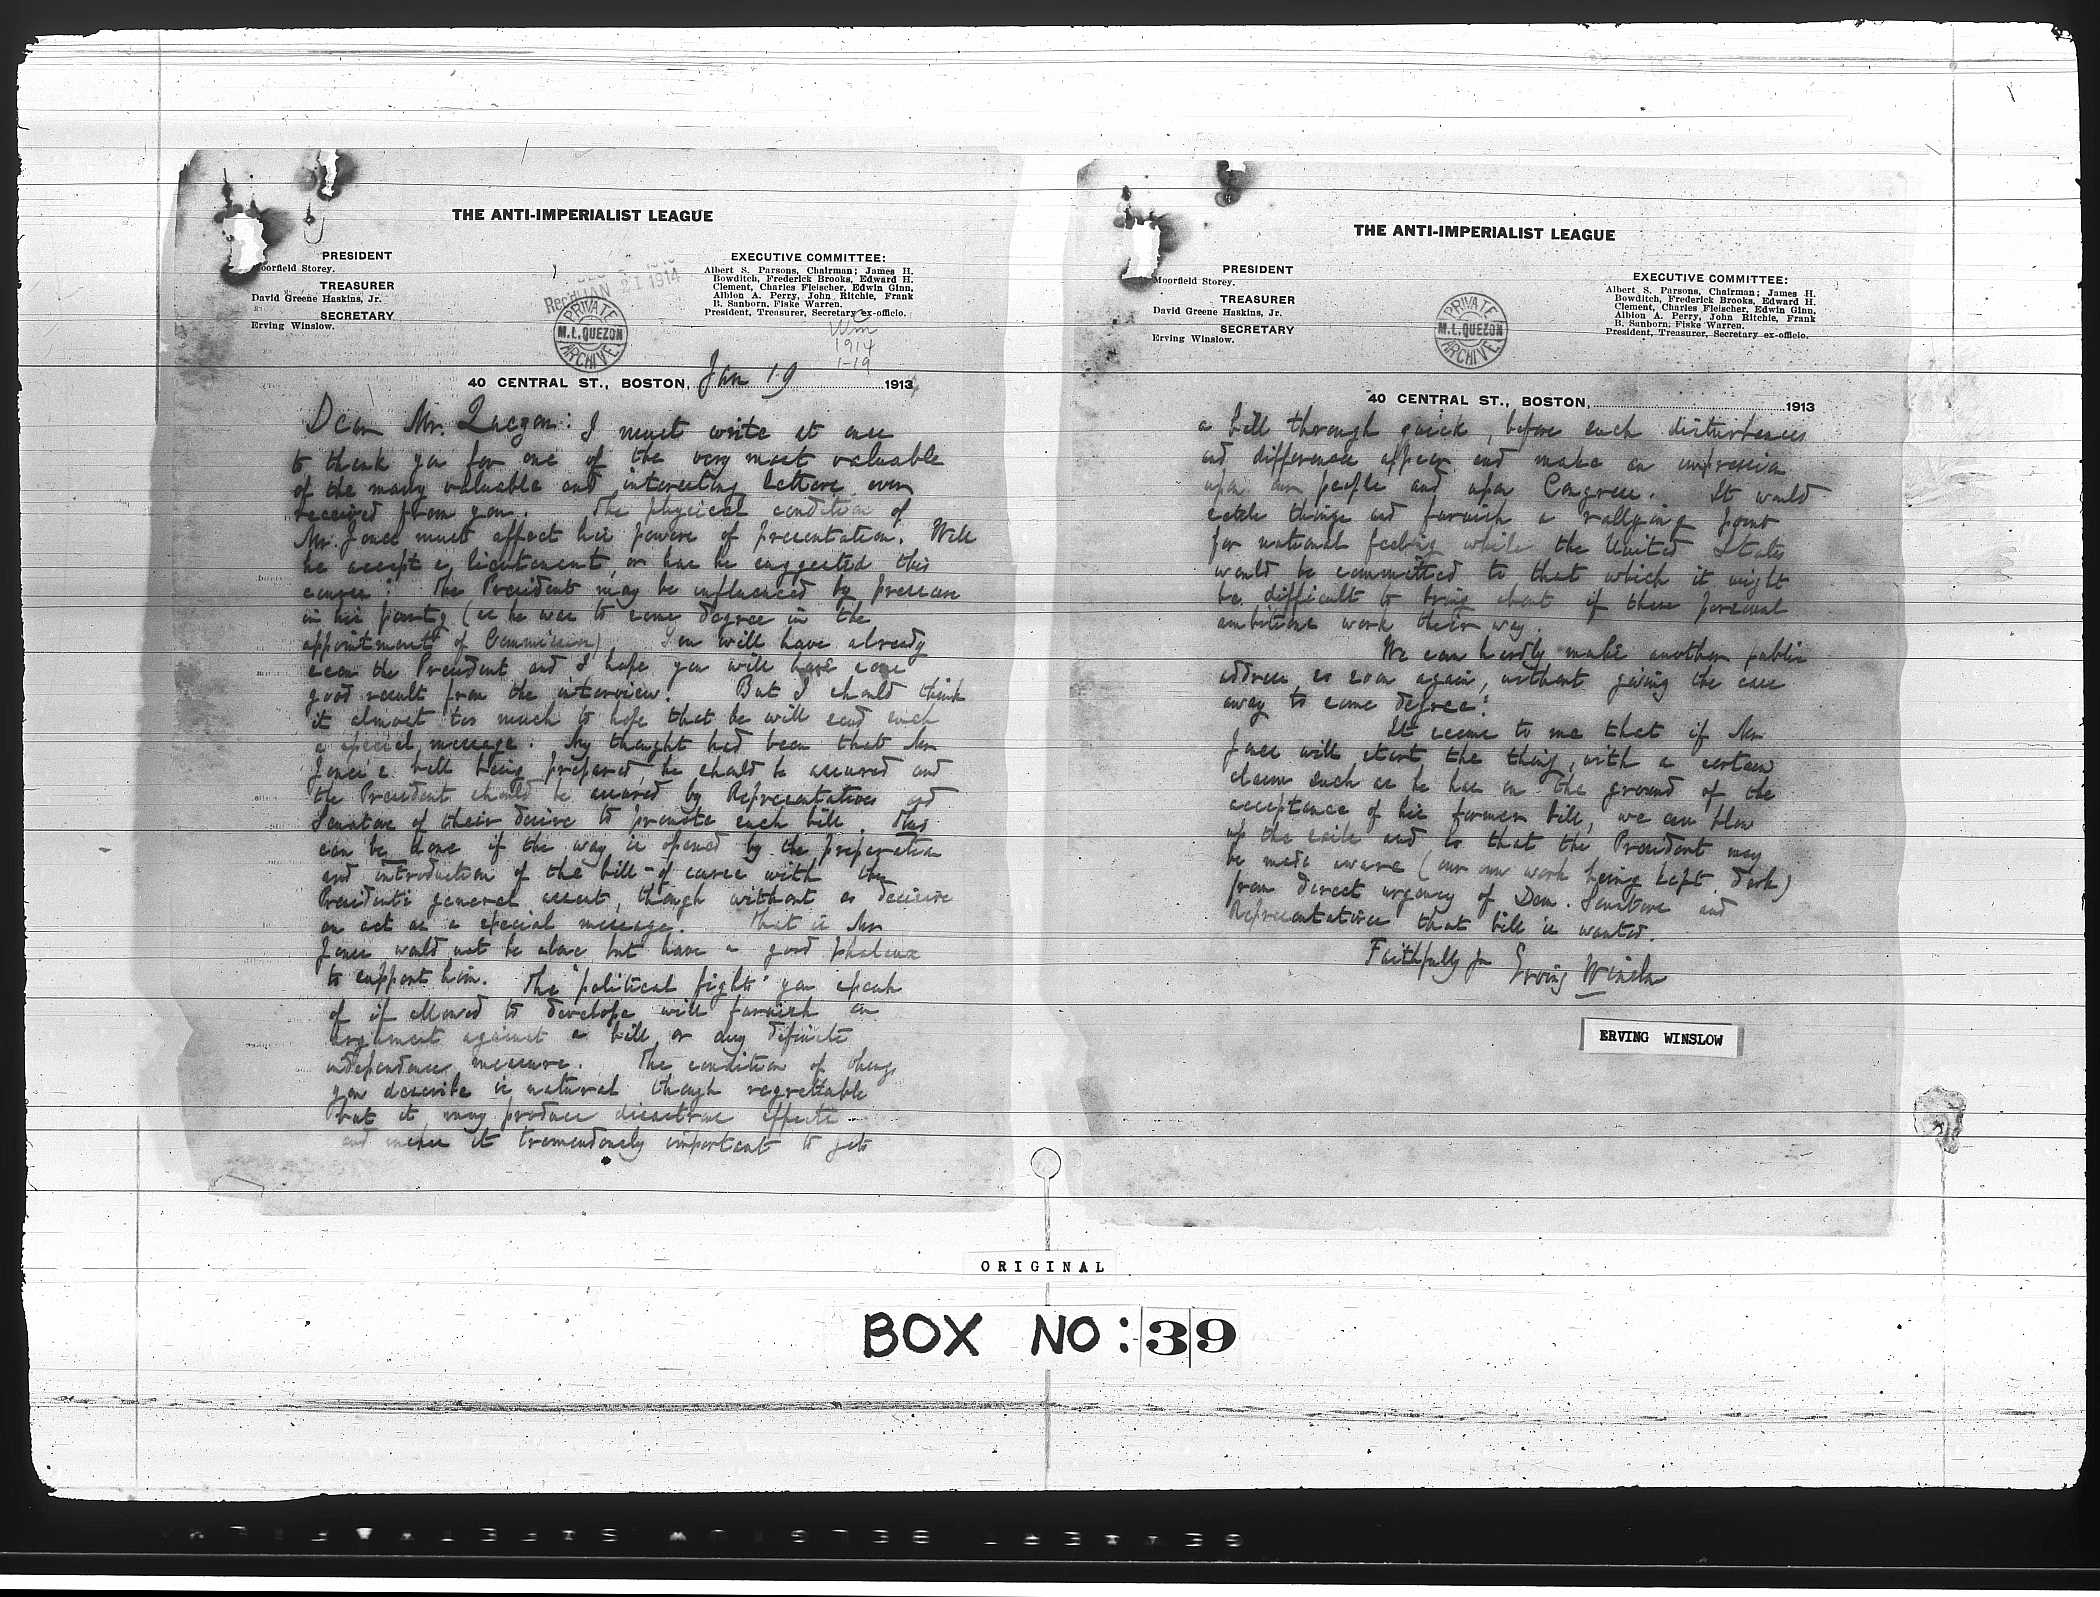 THE ANTI-IMPERIALIST LEAGUE
PRESIDENT
Moorfield Storey.
TREASURER
David Greene Haskins, Jr.
SECRETARY
Erving Winslow.
EXECUTIVE COMMITTEE:
Albert S. Parsons, Chairman; James H.
Bowditch, Frederick Brooks, Edward H.
Clement, Charles Fleischer, Edwin Ginn,
Albion A. Perry, John Ritchie, Frank
B. Sanborn, Fiske Warren.
President, Treasurer, Secretary ex-officio.
Rec'd JAN 21 1914
PRIVATE
M.L.QUEZON
ARCHIVE
1914
1-19
40 CENTRAL ST., BOSTON, Jan 19 1913
Dear Mr. Quezon: I must write at once
to thank you for one of the very most valuable
of the many valuable and interesting letters ever
received from you. The physical condition of
Mr. Jones must affect his powers of presentation. Will
he accept a lieutenant, or has he suggested this
course? The President may be influenced by pressure
in his party (as he was to some degree in the
appointments of Commission) You will have already
seen the President and I hope you will have some
good result from the interview. But I should think
it almost too much to hope that he will send such
a special message. My thought had been that Mr
Jones's bill being prepared, he should be assured and
the President should be assured by Representatives and
Senators of their desire to promote such bill. This
can be done if the way is opened by the preparation
and introduction of the bill - of course with the
President's general assent, though without so decisive
an act as a special message. That is Mr
Jones would not be alone but have a good phalanx
to support him. The "political fights" you speak
of if allowed to develope will furnish an
argument against a bill or any definite
independence measure. The condition of things
you describe is natural though regrettable
but it may produce disastrous effects
and makes it tremendously important to get
THE ANTI-IMPERIALIST LEAGUE
PRESIDENT
Moorfield Storey.
TREASURER
David Greene Haskins, Jr.
SECRETARY
Erving Winslow.
EXECUTIVE COMMITTEE:
Albert S. Parsons, Chairman; James H.
Bowditch, Frederick Brooks, Edward H.
Clement, Charles Fleischer, Edwin Ginn,
Albion A. Perry, John Ritchie, Frank
B. Sanborn, Fiske Warren.
President, Treasurer, Secretary ex-officio.
PRIVATE
M.L.QUEZON
ARCHIVE
40 CENTRAL ST., BOSTON, 1913
a bill through quick, before such disturbances
and differences appear and make an impression
upon our people and upon Congress. It would
settle things and furnish a rallying point
for national feeling while the United States
would be committed to that which it might
be difficult to bring about if these personal
ambitions work their way.
We can hardly make another public
address so soon again, without giving the case
away to some degree.
It seems to me that if Mr
Jones will start the thing, with a certain
claim such as he has on the ground of the
acceptance of his former bill, we can blow
up the sails and so that the President may
be made aware (our own work being kept dark)
from direct urgency of Dem. Senators and
Representatives that bill is wanted.
Faithfully yr Erving Winslow
ERVING WINSLOW
ORIGINAL
BOX NO: 39